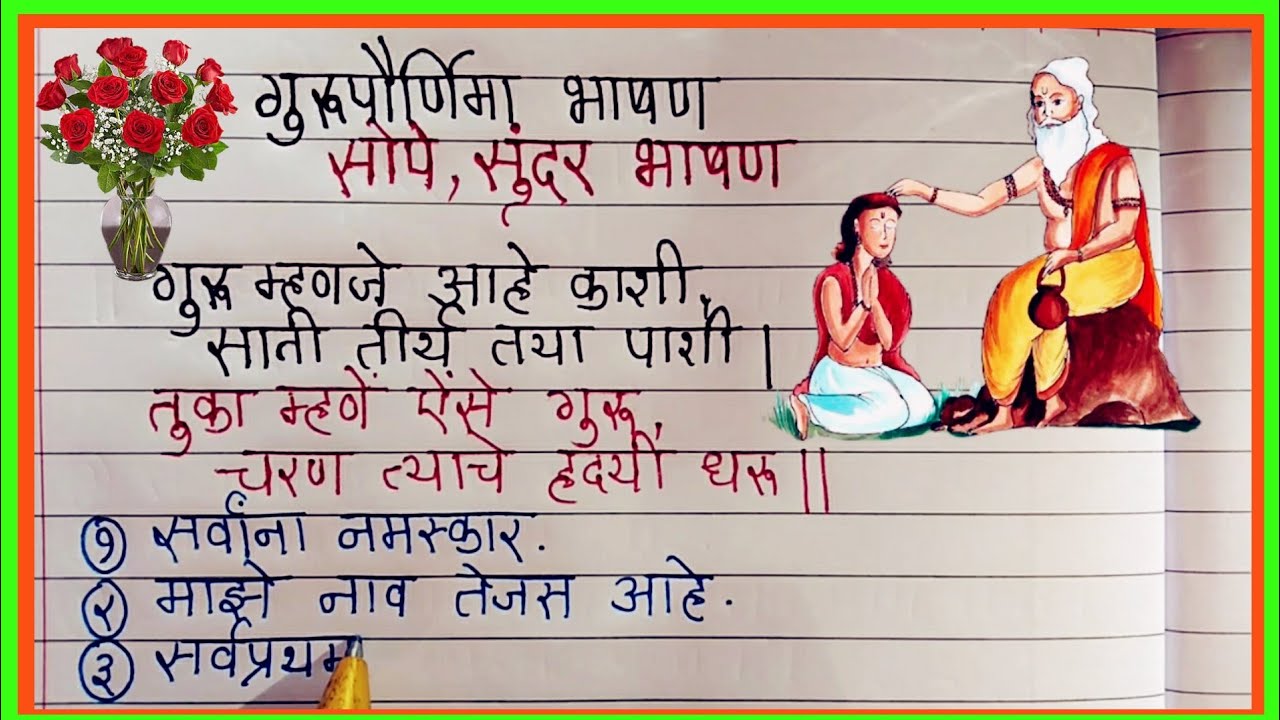 गुरूपौर्णिमा भाषण
सोपे, सुंदर भाषण
गुरू म्हणजे आहे काशी,
साती तीर्थ तया पाशी।
तुका म्हणें ऐंसे गुरू,
चरण त्याचे हृदयीं धरू॥
१ सर्वांना नमस्कार.
२ माझे नाव तेजस आहे.
३ सर्वप्रथम